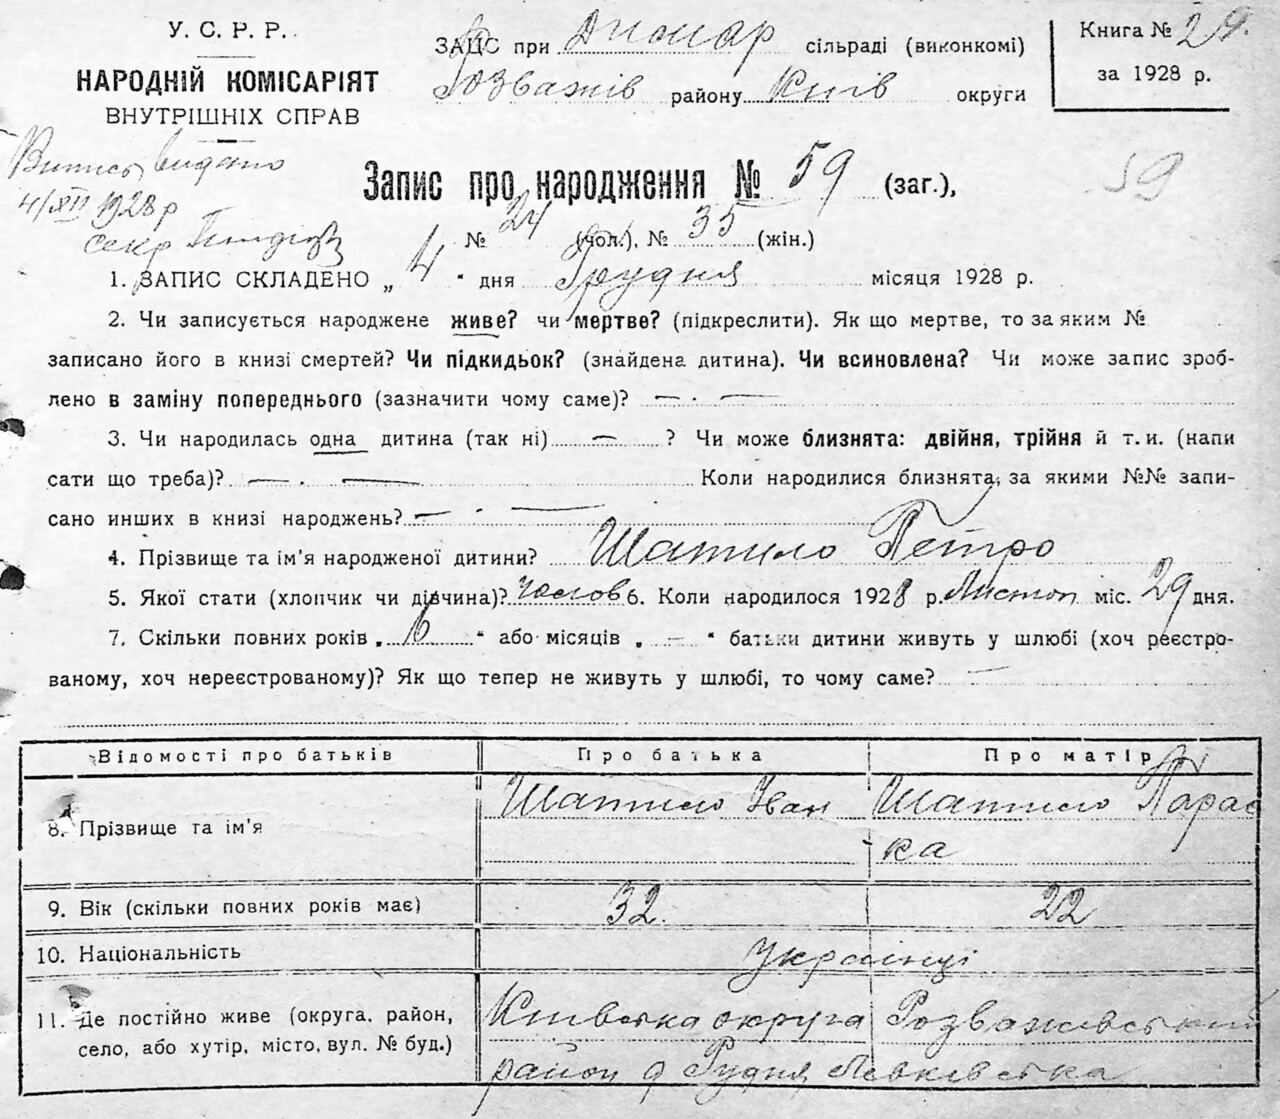 У. С. Р. Р.
НАРОДНІЙ КОМІСАРІЯТ
ВНУТРІШНІХ СПРАВ
ЗАЦС при сільраді (виконкомі)
Розважів району Київ округи
Книга № 29.
за 1928 р.
Випись видано
4/XII 1928 р
секр
Запис про народження № 59 (заг.),
59
№ 24 (чол.), № 35 (жін.)
1. ЗАПИС СКЛАДЕНО „ 4 “ дня Грудня місяця 1928 р.
2. Чи записується народжене живе? чи мертве? (підкреслити). Як що мертве, то за яким №
записано його в книзі смертей? Чи підкидьок? (знайдена дитина). Чи всиновлена? Чи може запис зроб-
лено в заміну попереднього (зазначити чому саме)? — . —
3. Чи народилась одна дитина (так ні) — ? Чи може близнята: двійня, трійня й т. и. (напи
сати що треба)? — . — Коли народилися близнята, за якими №№ запи-
сано инших в книзі народжень? — . —
4. Прізвище та ім'я народженої дитини? Шатило Петро
5. Якої стати (хлопчик чи дівчина)? 6. Коли народилося 1928 р. Листоп міс. 29 дня.
7. Скільки повних років „ “ або місяців „ — “ батьки дитини живуть у шлюбі (хоч реєстро-
ваному, хоч нереєстрованому)? Як що тепер не живуть у шлюбі, то чому саме? —
Відомості про батьків Про батька Про матір
8. Прізвище та ім'я Шатило Іван Шатило Парас
ка
9. Вік (скільки повних років має) 32. 22
10. Національність Українці
11. Де постійно живе (округа, район, Київська округа Розважівський
село, або хутір, місто, вул. № буд.) район с Рудня Левківська